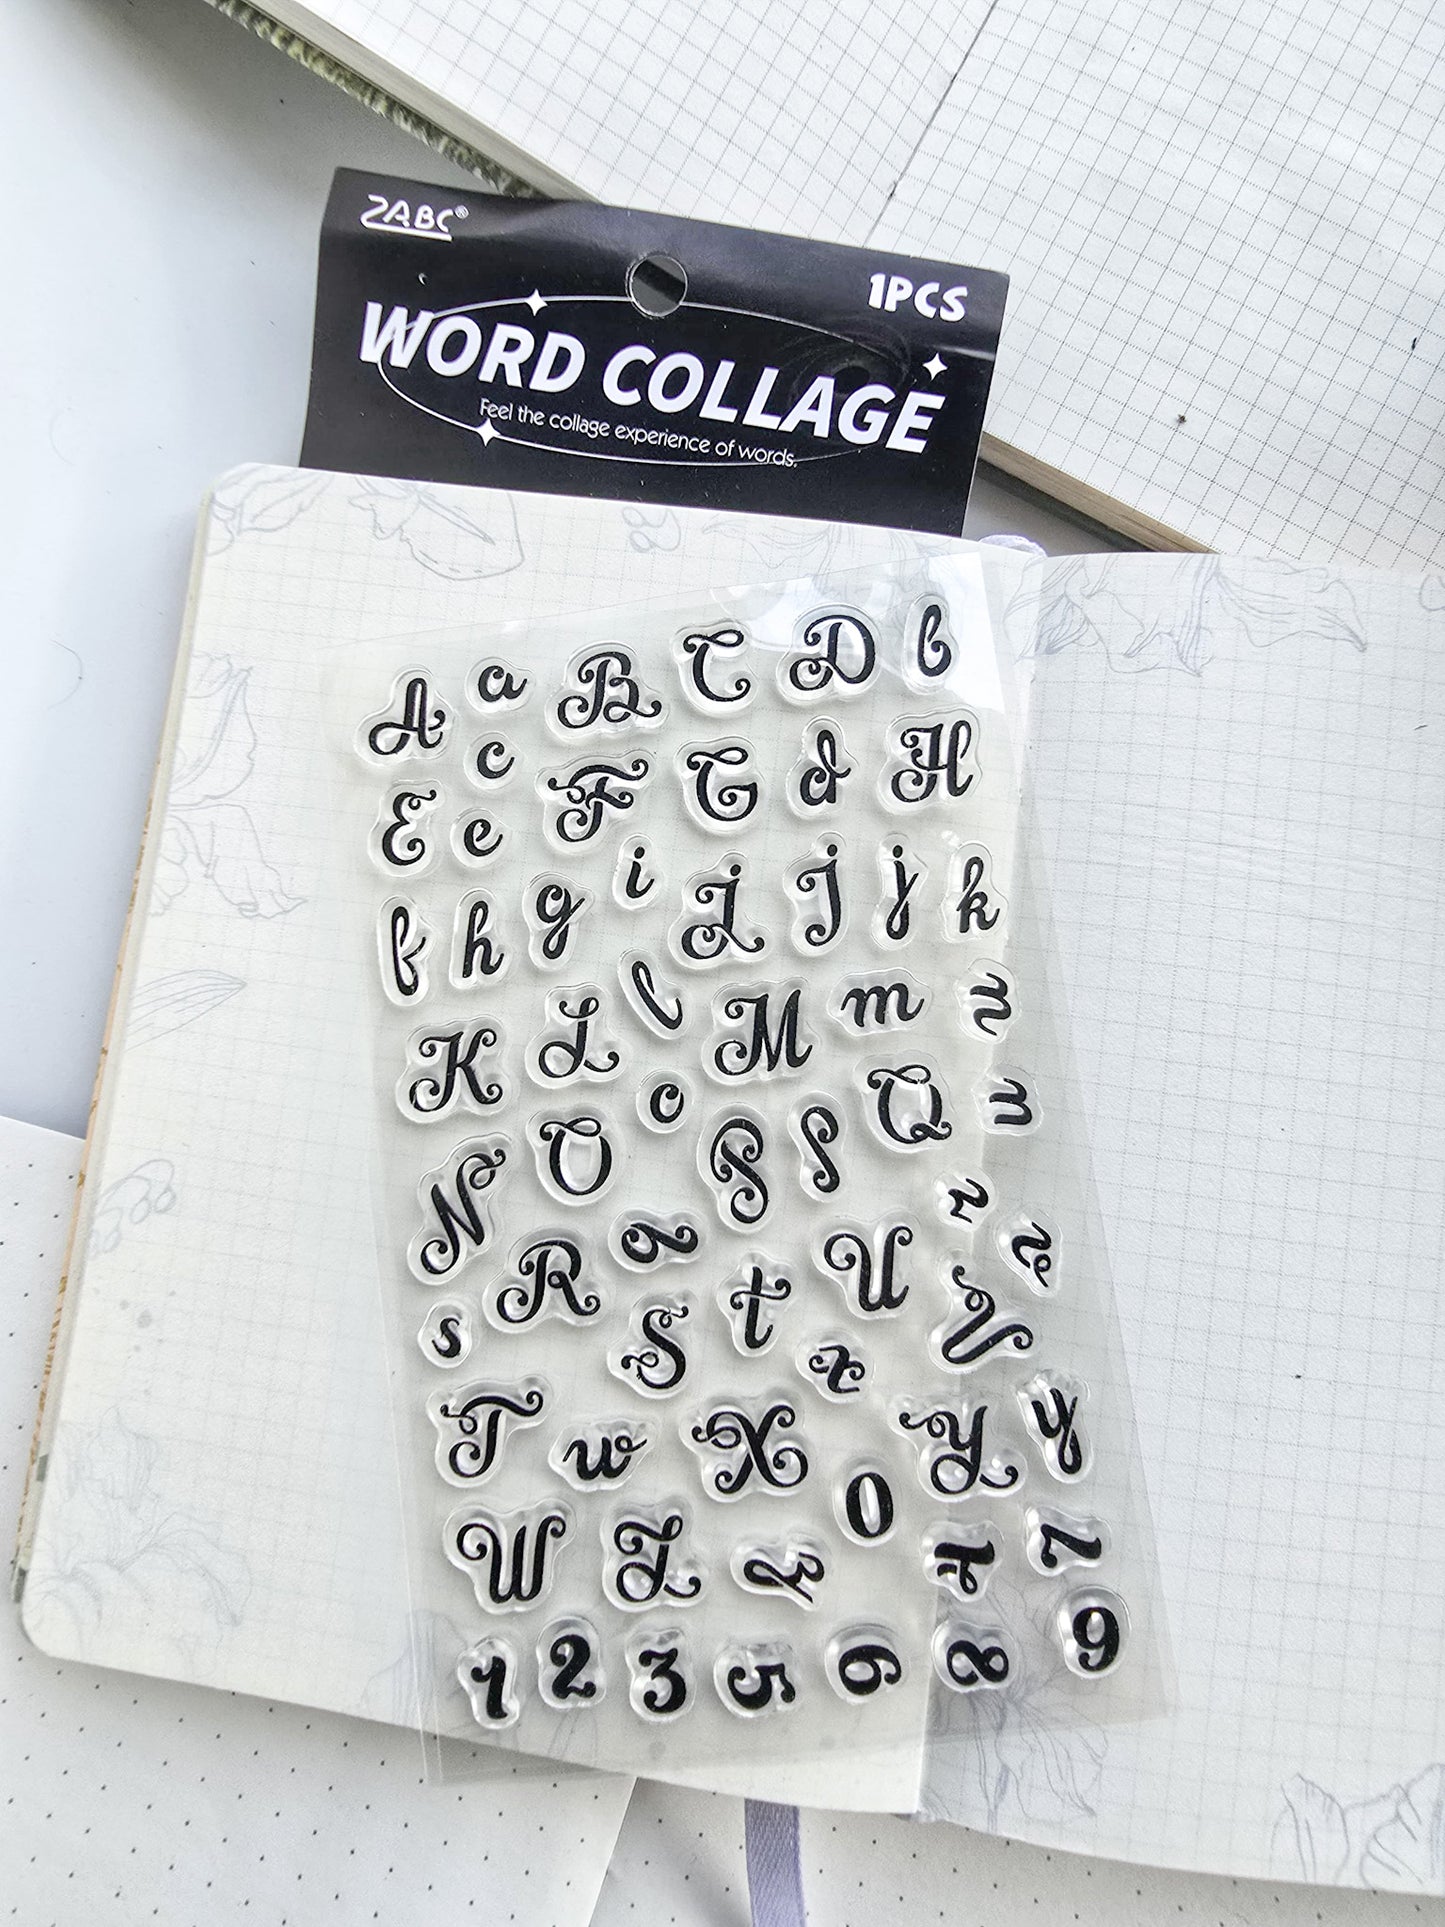 ZABC®
1PCS
WORD COLLAGE
Feel the collage experience of words.
A a B C D b
c
E e F G d H
f h g i I J j k
K L l M m n
N O o P p Q u
R q U r v
s S t x V
T w X 0 Y y
W Z z 4 7
1 2 3 5 6 8 9